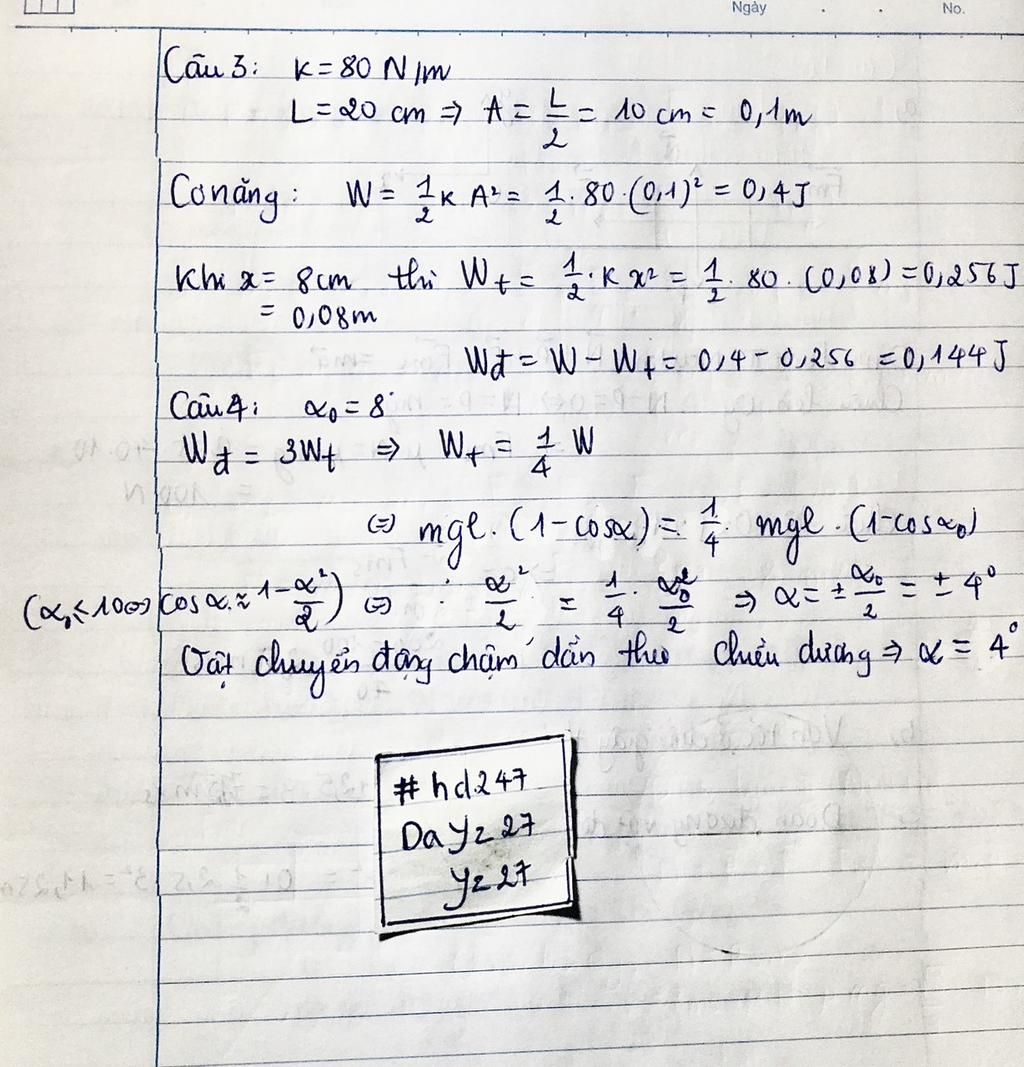 Ngày . . No.
Câu 3: K = 80 N/m
L = 20 cm ⇒ A = L/2 = 10 cm = 0,1m
Cơ năng: W = 1/2 K A² = 1/2 . 80 . (0,1)² = 0,4J
Khi x = 8cm thì Wt = 1/2 . K x² = 1/2 . 80 . (0,08) = 0,256J
= 0,08m
Wđ = W - Wt = 0,4 - 0,256 = 0,144J
Câu 4: α₀ = 8°
Wđ = 3Wt ⇒ Wt = 1/4 W
(=) mgl . (1-cosα) = 1/4 . mgl . (1-cosα₀)
(α₀ ≤ 10 ⇔ cos α ≈ 1 - α²/2) (=) α²/2 = 1/4 . α₀²/2 ⇒ α = ± α₀/2 = ± 4°
Vật chuyển động chậm dần theo chiều dương ⇒ α = 4°
# hd247
Dayz27
yz27